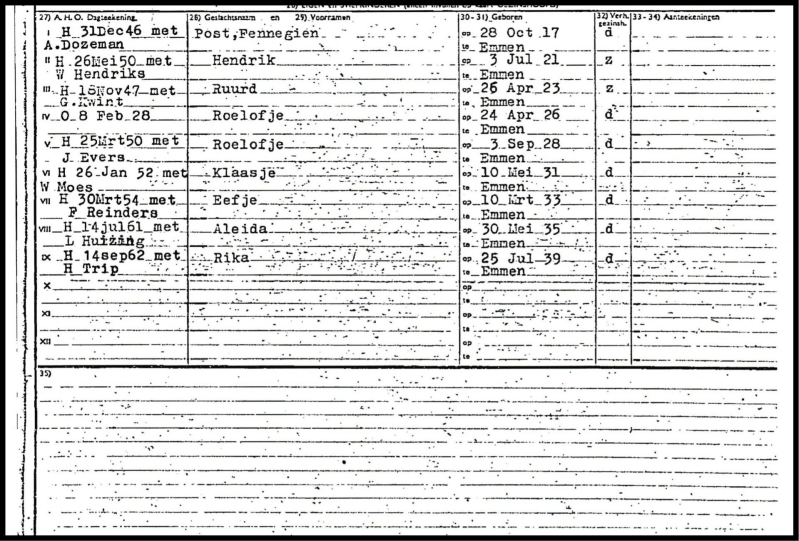 27) A. H. O. Dagteekening 28) Geslachtsnaam en 29) Voornamen 30-31) Geboren 32) Verh. gezinsh. 33-34) Aanteekeningen
I H 31Dec46 met Post,Fennegien op 28 Oct 17 d
A.Dozeman te Emmen
II H 26Mei50 met Hendrik op 3 Jul 21 z
W Hendriks te Emmen
III H 18Nov47 met Ruurd op 26 Apr 23 z
G.Kwint te Emmen
IV O 8 Feb 28 Roelofje op 24 Apr 26 d
te Emmen
V H 25Mrt50 met Roelofje op 3 Sep 28 d
J.Evers te Emmen
VI H 26 Jan 52 met Klaasje op 10 Mei 31 d
W Moes te Emmen
VII H 30Mrt54 met Eefje op 10 Mrt 33 d
F Reinders te Emmen
VIII H 14jul61 met Aleida op 30 Mei 35 d
L Huizing te Emmen
IX H 14sep62 met Rika op 25 Jul 39 d
H Trip te Emmen
X op
te
XI op
te
XII op
te
35)